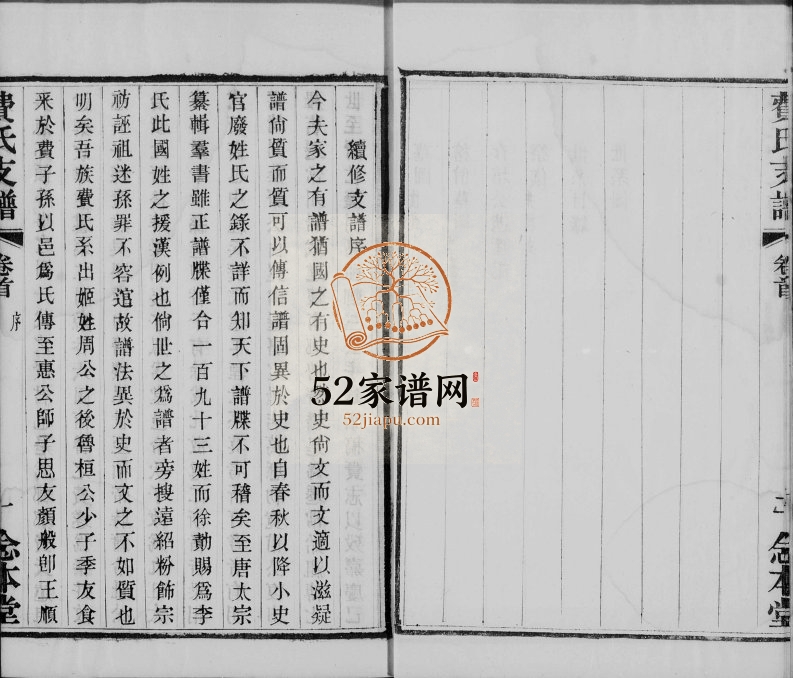 費氏支譜
卷首
二
念本堂
續修支譜序
今夫家之有譜猶國之有史也史尙文而文適以滋疑
譜尙質而質可以傳信譜固異於史也自春秋以降小史
官廢姓氏之錄不詳而知天下譜牒不可稽矣至唐太宗
纂輯羣書雖正譜牒僅台一百九十三姓而徐勣賜爲李
氏此國姓之援漢例也倘世之爲譜者旁搜遠紹粉飾宗
祊誣祖迷孫罪不容逭故譜法異於史而文之不如質也
明矣吾族費氏系出姬姓周公之後魯桓公少子季友食
采於費子孫以邑爲氏傳至惠公師子思友顏般卽王順
費氏支譜
卷首
序
一
念本堂
52家谱网
52jiapu.com